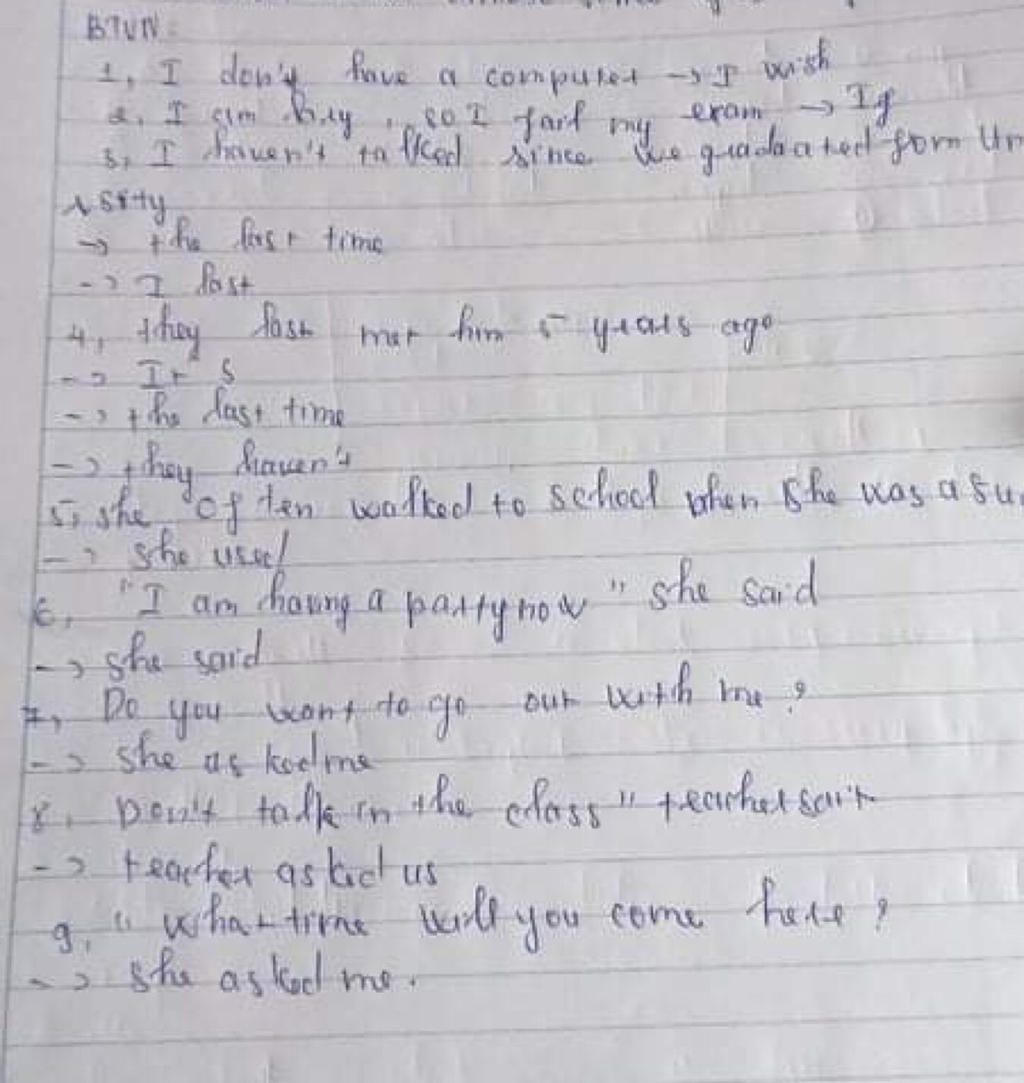 BTVN:
1, I don't have a computer → I wish
2, I am lazy, so I fail my exam → If
3, I haven't talked since we graduated form Un
sity
→ the last time
→ I last
4, they last met him 5 years ago
→ It s
→ the last time
→ they haven't
5, she often walked to school when she was a su
→ she used
6, "I am having a party now" she said
→ she said
7, Do you want to go out with me?
→ she asked me
8, Don't talk in the class" teacher sait
→ teacher asked us
9, "What time will you come here?
→ she asked me.